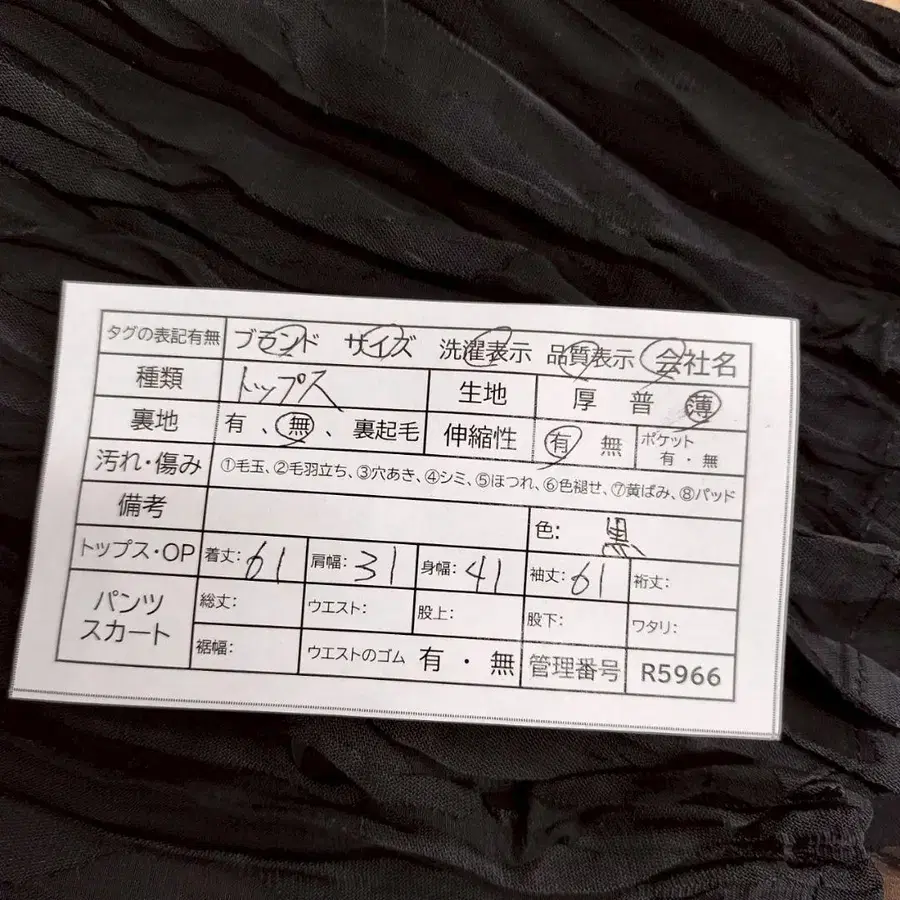 タグの表記有無 ブランド サイズ 洗濯表示 品質表示 会社名
種類 トップス 生地 厚 普 薄
裏地 有 、 無 、 裏起毛 伸縮性 有 無 ポケット 有 ・ 無
汚れ・傷み ①毛玉、②毛羽立ち、③穴あき、④シミ、⑤ほつれ、⑥色褪せ、⑦黄ばみ、⑧パッド
備考 色: 黒
トップス・OP 着丈: 61 肩幅: 31 身幅: 41 袖丈: 61 裄丈:
パンツ スカート 総丈: ウエスト: 股上: 股下: ワタリ:
裾幅: ウエストのゴム 有 ・ 無 管理番号 R5966